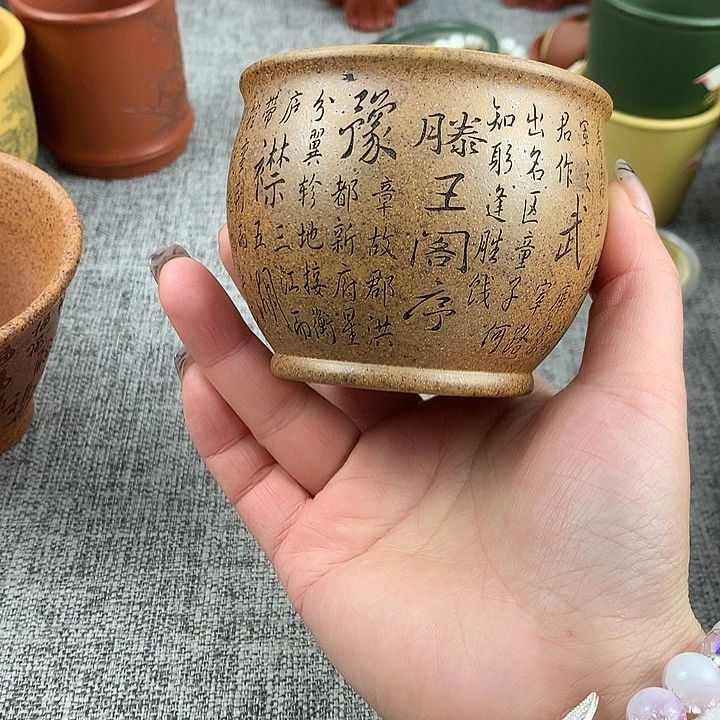 军之武库家
君作宰路
出名区童子何
知躬逢胜饯
滕王阁序
豫章故郡洪
都新府星
分翼轸地接衡
庐襟三江而
带五湖